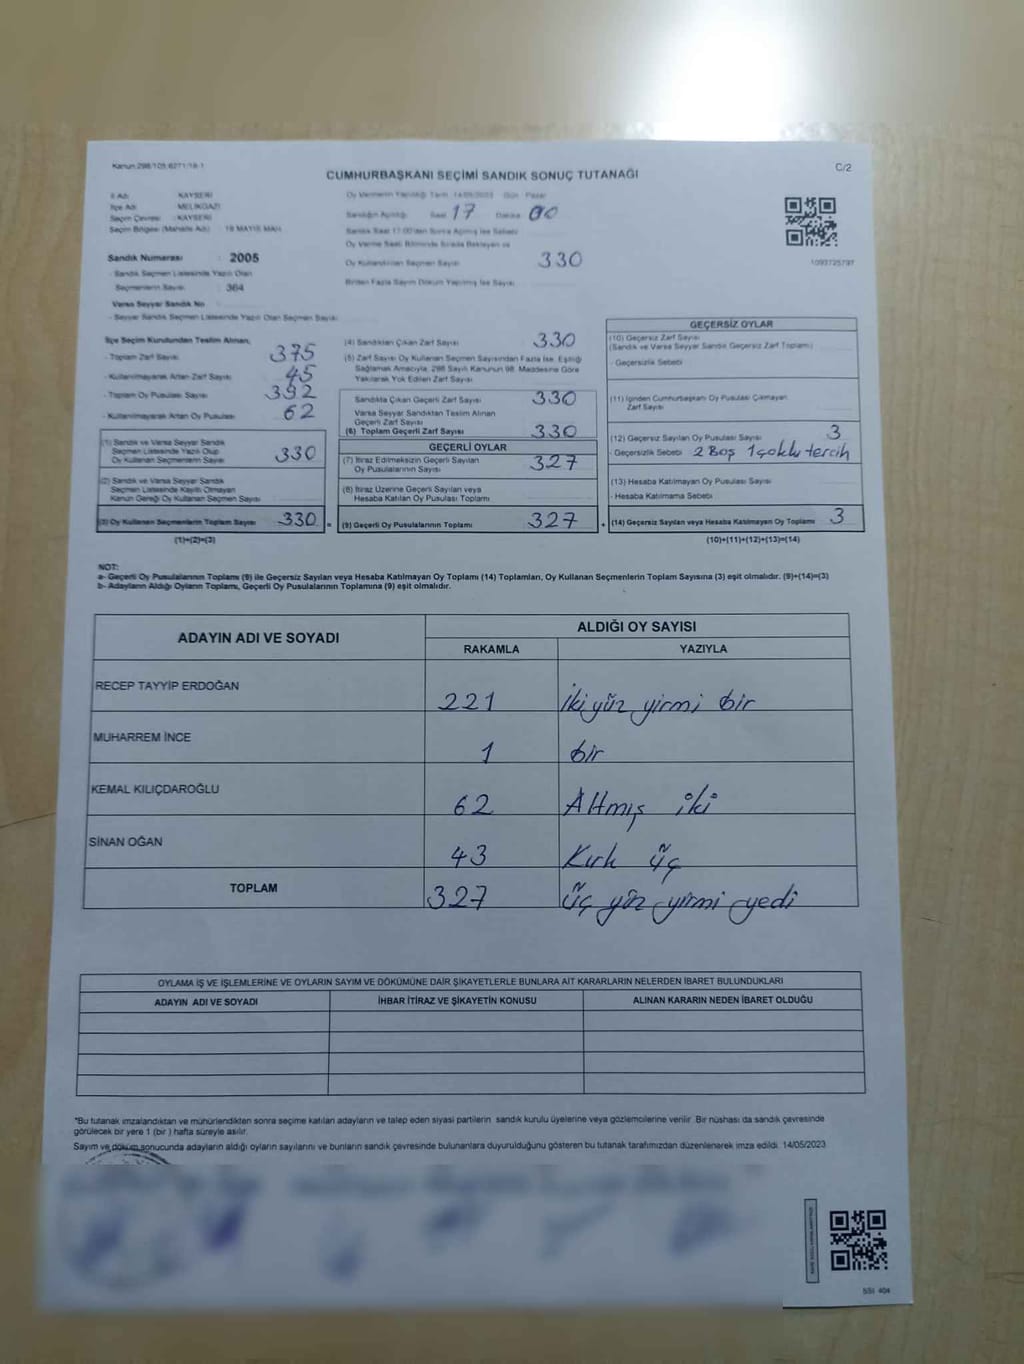 Kanun 298/105 6271/18-1
C/2
CUMHURBAŞKANI SEÇİMİ SANDIK SONUÇ TUTANAĞI
İl Adı : KAYSERİ
İlçe Adı : MELİKGAZİ
Seçim Çevresi : KAYSERİ
Seçim Bölgesi (Mahalle Adı) : 19 MAYIS MAH.
Sandık Numarası : 2005
- Sandık Seçmen Listesinde Yazılı Olan
Seçmenlerin Sayısı : 364
Varsa Seyyar Sandık No
- Seyyar Sandık Seçmen Listesinde Yazılı Olan Seçmen Sayısı:
Oy Vermenin Yapıldığı Tarih 14/05/2023 Gün : Pazar
Sandığın Açıldığı: Saat 17 Dakika 00
Sandık Saat 17:00'den Sonra Açılmış İse Sebebi
Oy Verme Saati Bitiminde Sırada Bekleyen ve
Oy Kullandırılan Seçmen Sayısı 330
Birden Fazla Sayım Döküm Yapılmış İse Sayısı
1093725797
İlçe Seçim Kurulundan Teslim Alınan;
- Toplam Zarf Sayısı 375
- Kullanılmayarak Artan Zarf Sayısı 45
- Toplam Oy Pusulası Sayısı 392
- Kullanılmayarak Artan Oy Pusulası 62
(1) Sandık ve Varsa Seyyar Sandık
Seçmen Listesinde Yazılı Olup
Oy Kullanan Seçmenlerin Sayısı 330
(2) Sandık ve Varsa Seyyar Sandık
Seçmen Listesinde Kayıtlı Olmayan
Kanun Gereği Oy Kullanan Seçmen Sayısı
(3) Oy Kullanan Seçmenlerin Toplam Sayısı 330 =
(1)+(2)=(3)
(4) Sandıktan Çıkan Zarf Sayısı 330
(5) Zarf Sayısı Oy Kullanan Seçmen Sayısından Fazla İse, Eşitliği
Sağlamak Amacıyla, 298 Sayılı Kanunun 98. Maddesine Göre
Yakılarak Yok Edilen Zarf Sayısı
Sandıkta Çıkan Geçerli Zarf Sayısı 330
Varsa Seyyar Sandıktan Teslim Alınan
Geçerli Zarf Sayısı
(6) Toplam Geçerli Zarf Sayısı 330
GEÇERLİ OYLAR
(7) İtiraz Edilmeksizin Geçerli Sayılan
Oy Pusulalarının Sayısı 327
(8) İtiraz Üzerine Geçerli Sayılan veya
Hesaba Katılan Oy Pusulası Toplamı
(9) Geçerli Oy Pusulalarının Toplamı 327 +
GEÇERSİZ OYLAR
(10) Geçersiz Zarf Sayısı
(Sandık ve Varsa Seyyar Sandık Geçersiz Zarf Toplamı)
- Geçersizlik Sebebi
(11) İçinden Cumhurbaşkanı Oy Pusulası Çıkmayan
Zarf Sayısı
(12) Geçersiz Sayılan Oy Pusulası Sayısı 3
- Geçersizlik Sebebi 2 Boş 1 çoklu tercih
(13) Hesaba Katılmayan Oy Pusulası Sayısı
- Hesaba Katılmama Sebebi
(14) Geçersiz Sayılan veya Hesaba Katılmayan Oy Toplamı 3
(10)+(11)+(12)+(13)=(14)
NOT:
a- Geçerli Oy Pusulalarının Toplamı (9) ile Geçersiz Sayılan veya Hesaba Katılmayan Oy Toplamı (14) Toplamları, Oy Kullanan Seçmenlerin Toplam Sayısına (3) eşit olmalıdır. (9)+(14)=(3)
b- Adayların Aldığı Oyların Toplamı, Geçerli Oy Pusulalarının Toplamına (9) eşit olmalıdır.
ADAYIN ADI VE SOYADI ALDIĞI OY SAYISI
RAKAMLA YAZIYLA
RECEP TAYYİP ERDOĞAN 221 İki yüz yirmi bir
MUHARREM İNCE 1 bir
KEMAL KILIÇDAROĞLU 62 Altmış iki
SİNAN OĞAN 43 Kırk üç
TOPLAM 327 Üç yüz yirmi yedi
OYLAMA İŞ VE İŞLEMLERİNE VE OYLARIN SAYIM VE DÖKÜMÜNE DAİR ŞİKAYETLERLE BUNLARA AİT KARARLARIN NELERDEN İBARET BULUNDUKLARI
ADAYIN ADI VE SOYADI İHBAR İTİRAZ VE ŞİKAYETİN KONUSU ALINAN KARARIN NEDEN İBARET OLDUĞU
*Bu tutanak imzalandıktan ve mühürlendikten sonra seçime katılan adayların ve talep eden siyasi partilerin sandık kurulu üyelerine veya gözlemcilerine verilir. Bir nüshası da sandık çevresinde
görülecek bir yere 1 (bir ) hafta süreyle asılır.
Sayım ve döküm sonucunda adayların aldığı oyların sayılarını ve bunların sandık çevresinde bulunanlara duyurulduğunu gösteren bu tutanak tarafımızdan düzenlenerek imza edildi. 14/05/2023
SSI 404